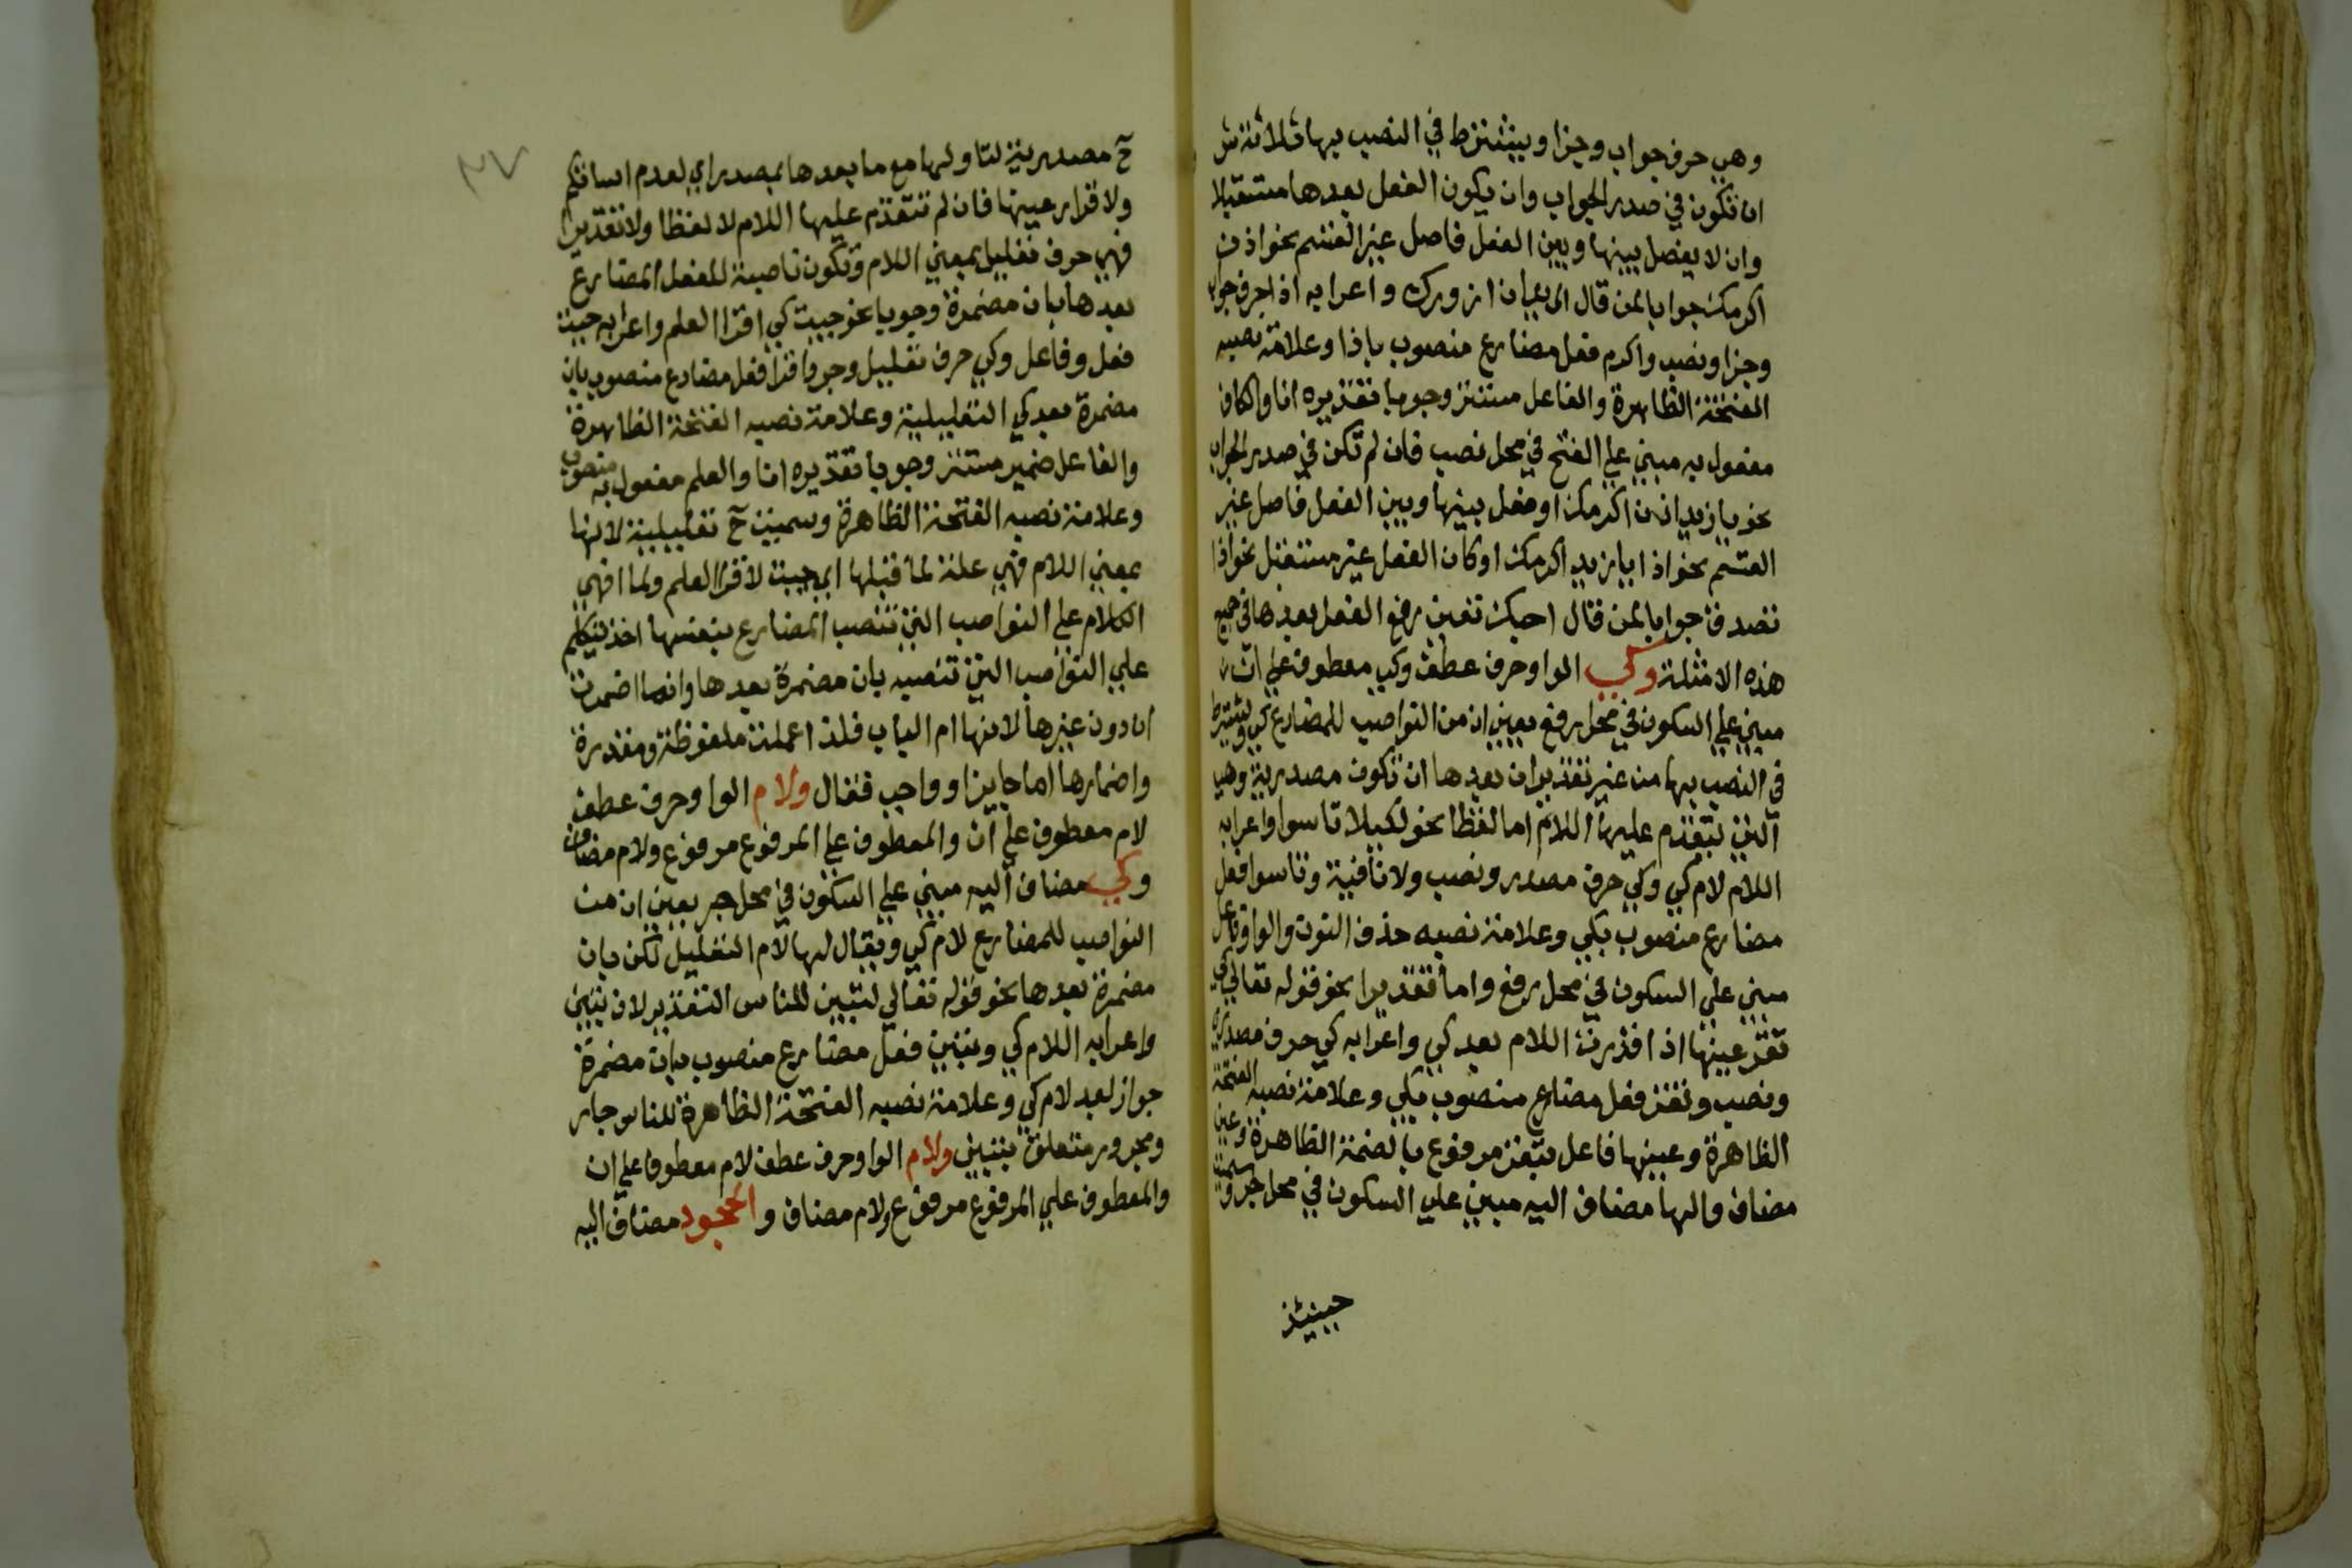 وهي حرف جواب وجزا ويشترط في النصب بها ثلاثة ش
ان تكون في صدر الجواب وان يكون الفعل بعدها مستقبلا
وان لا يفصل بينها وبين الفعل فاصل غير القسم نحو اذن
اكرمك جوابا لمن قال اريد ان ازورك واعرابه اذا حرف جواب
وجزا ونصب واكرم فعل مضارع منصوب باذا وعلامة نصبه
الفتحة الظاهرة والفاعل مستتر وجوبا تقديره انا والكاف
مفعول به مبني علي الفتح في محل نصب فان لم تكن في صدر الجواب
نحو يا زيد اذن اكرمك او فصل بينها وبين الفعل فاصل غير
القسم نحو اذا يا زيد اكرمك او كان الفعل غير مستقبل نحو اذا
تصدق جوابا لمن قال احبك تعين رفع الفعل بعدها في جميع
هذه الامثلة وكي الواو حرف عطف وكي معطوف علي ان
مبني علي السكون في محل رفع يعني ان من النواصب للمضارع كي ويشترط
في النصب بها من غير تقدير ان بعدها ان تكون مصدرية وهي
التي تتقدم عليها اللام اما لفظا نحو لكيلا تاسوا واعرابه
اللام لام كي وكي حرف مصدر ونصب ولا نافية وتاسوا فعل
مضارع منصوب بكي وعلامة نصبه حذف النون والواو فاعل
مبني علي السكون في محل رفع واما تقديرا نحو قوله تعالي كي
تقر عينها اذا قدرت اللام بعد كي واعرابه كي حرف مصدري
ونصب وتقر فعل مضارع منصوب بكي وعلامة نصبه الفتحة
الظاهرة وعينها فاعل بتقر مرفوع بالضمة الظاهرة وعين
مضاف والها مضاف اليه مبني علي السكون في محل جر وسميت
حينئذ
٣٧
ح مصدرية لتاولها مع ما بعدها بمصدر اي لعدم اساتكم
ولاقرار عينها فان لم تتقدم عليها اللام لا لفظا ولا تقديرا
فهي حرف تعليل بمعني اللام وتكون ناصبة للفعل المضارع
بعدها بان مضمرة وجوبا نحو جيت كي اقرا العلم واعرابه جيت
فعل وفاعل وكي حرف تعليل وجر واقرا فعل مضارع منصوب بان
مضمرة بعد كي التعليلية وعلامة نصبه الفتحة الظاهرة
والفاعل ضمير مستتر وجوبا تقديره انا والعلم مفعول به منصوب
وعلامة نصبه الفتحة الظاهرة وسميت ح تعليلية لانها
بمعني اللام فهي علة لما قبلها اي جيت لاقرا العلم ولما انهي
الكلام علي النواصب التي تنصب المضارع بنفسها اخذ يتكلم
علي النواصب التي تنصبه بان مضمرة بعدها وانما اضمرت
ان دون غيرها لانها ام الباب فلذا عملت ملفوظة ومقدرة
واضمارها اما جايزا وواجب فقال ولام الواو حرف عطف
لام معطوف علي ان والمعطوف علي المرفوع مرفوع ولام مضاف
وكي مضاف اليه مبني علي السكون في محل جر يعني ان من
النواصب للمضارع لام كي ويقال لها لام التعليل لكن بان
مضمرة بعدها نحو قوله تعالي لتبين للناس التقدير لان تبين
واعرابه اللام كي وتبين فعل مضارع منصوب بان مضمرة
جواز بعد لام كي وعلامة نصبه الفتحة الظاهرة للناس جار
ومجرور متعلق بتبين ولام الواو حرف عطف لام معطوف علي ان
والمعطوف علي المرفوع مرفوع ولام مضاف والجحود مضاف اليه